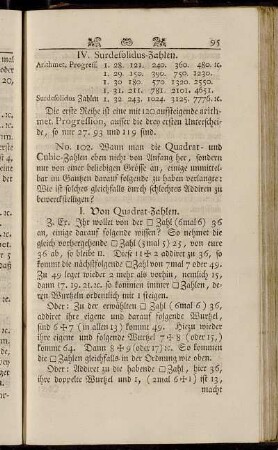 95
IV. Surdesolidus-Zahlen.
Arithmet. Progress. 1. 28. 121. 240. 360. 480. ꝛc.
1. 29. 150. 390. 750. 1230.
1. 30. 180. 570. 1320. 2550.
1. 31. 211. 781. 2101. 4651.
Surdesolidus Zahlen 1. 32. 243. 1024. 3125. 7776. ꝛc.
Die erste Reihe ist eine mit 120 aufsteigende arith-
met. Progression, ausser die drey ersten Unterschei-
de, so nur 27. 93 und 119 sind.
No. 102. Wann man die Quadrat- und
Cubic-Zahlen eben nicht von Anfang her, sondern
nur von einer beliebigen Grösse an, einige unmittel-
bar im Gantzen darauf folgende zu haben verlangte:
Wie ist solches gleichfalls durch schlechtes Addiren zu
bewerckstelligen?
I. Von Quadrat-Zahlen.
Z. Ex. Ihr woltet von der □ Zahl (6mal6) 36
an, einige darauf folgende wissen? So nehmet die
gleich vorhergehende □ Zahl (5mal 5) 25, von eure
36 ab, so bleibe 11. Diese 11 ✠ 2 addiret zu 36, so
kommt die nächstfolgende □ Zahl von 7mal 7 oder 49.
Zu 49 leget wieder 2 mehr als vorhin, nemlich 15,
dann 17. 19. 21. ꝛc. so kommen immer □ Zahlen, de-
ren Wurtzeln ordentlich mit 1 steigen.
Oder: Zu der erwählten □ Zahl (6mal 6) 36,
addiret ihre eigene und darauf folgende Wurtzel,
sind 6 ✠ 7 (in allen 13) kommt 49. Hiezu wieder
ihre eigene und folgende Wurtzel 7 ✠ 8 (oder 15,)
kommt 64. Dann 8 ✠ 9 (oder 17) ꝛc. So kommen
die □ Zahlen gleichfalls in der Ordnung wie oben.
Oder: Addiret zu die habende □ Zahl, hier 36,
ihre doppelte Wurtzel und 1, (2mal 6 ✠ 1) ist 13,
macht